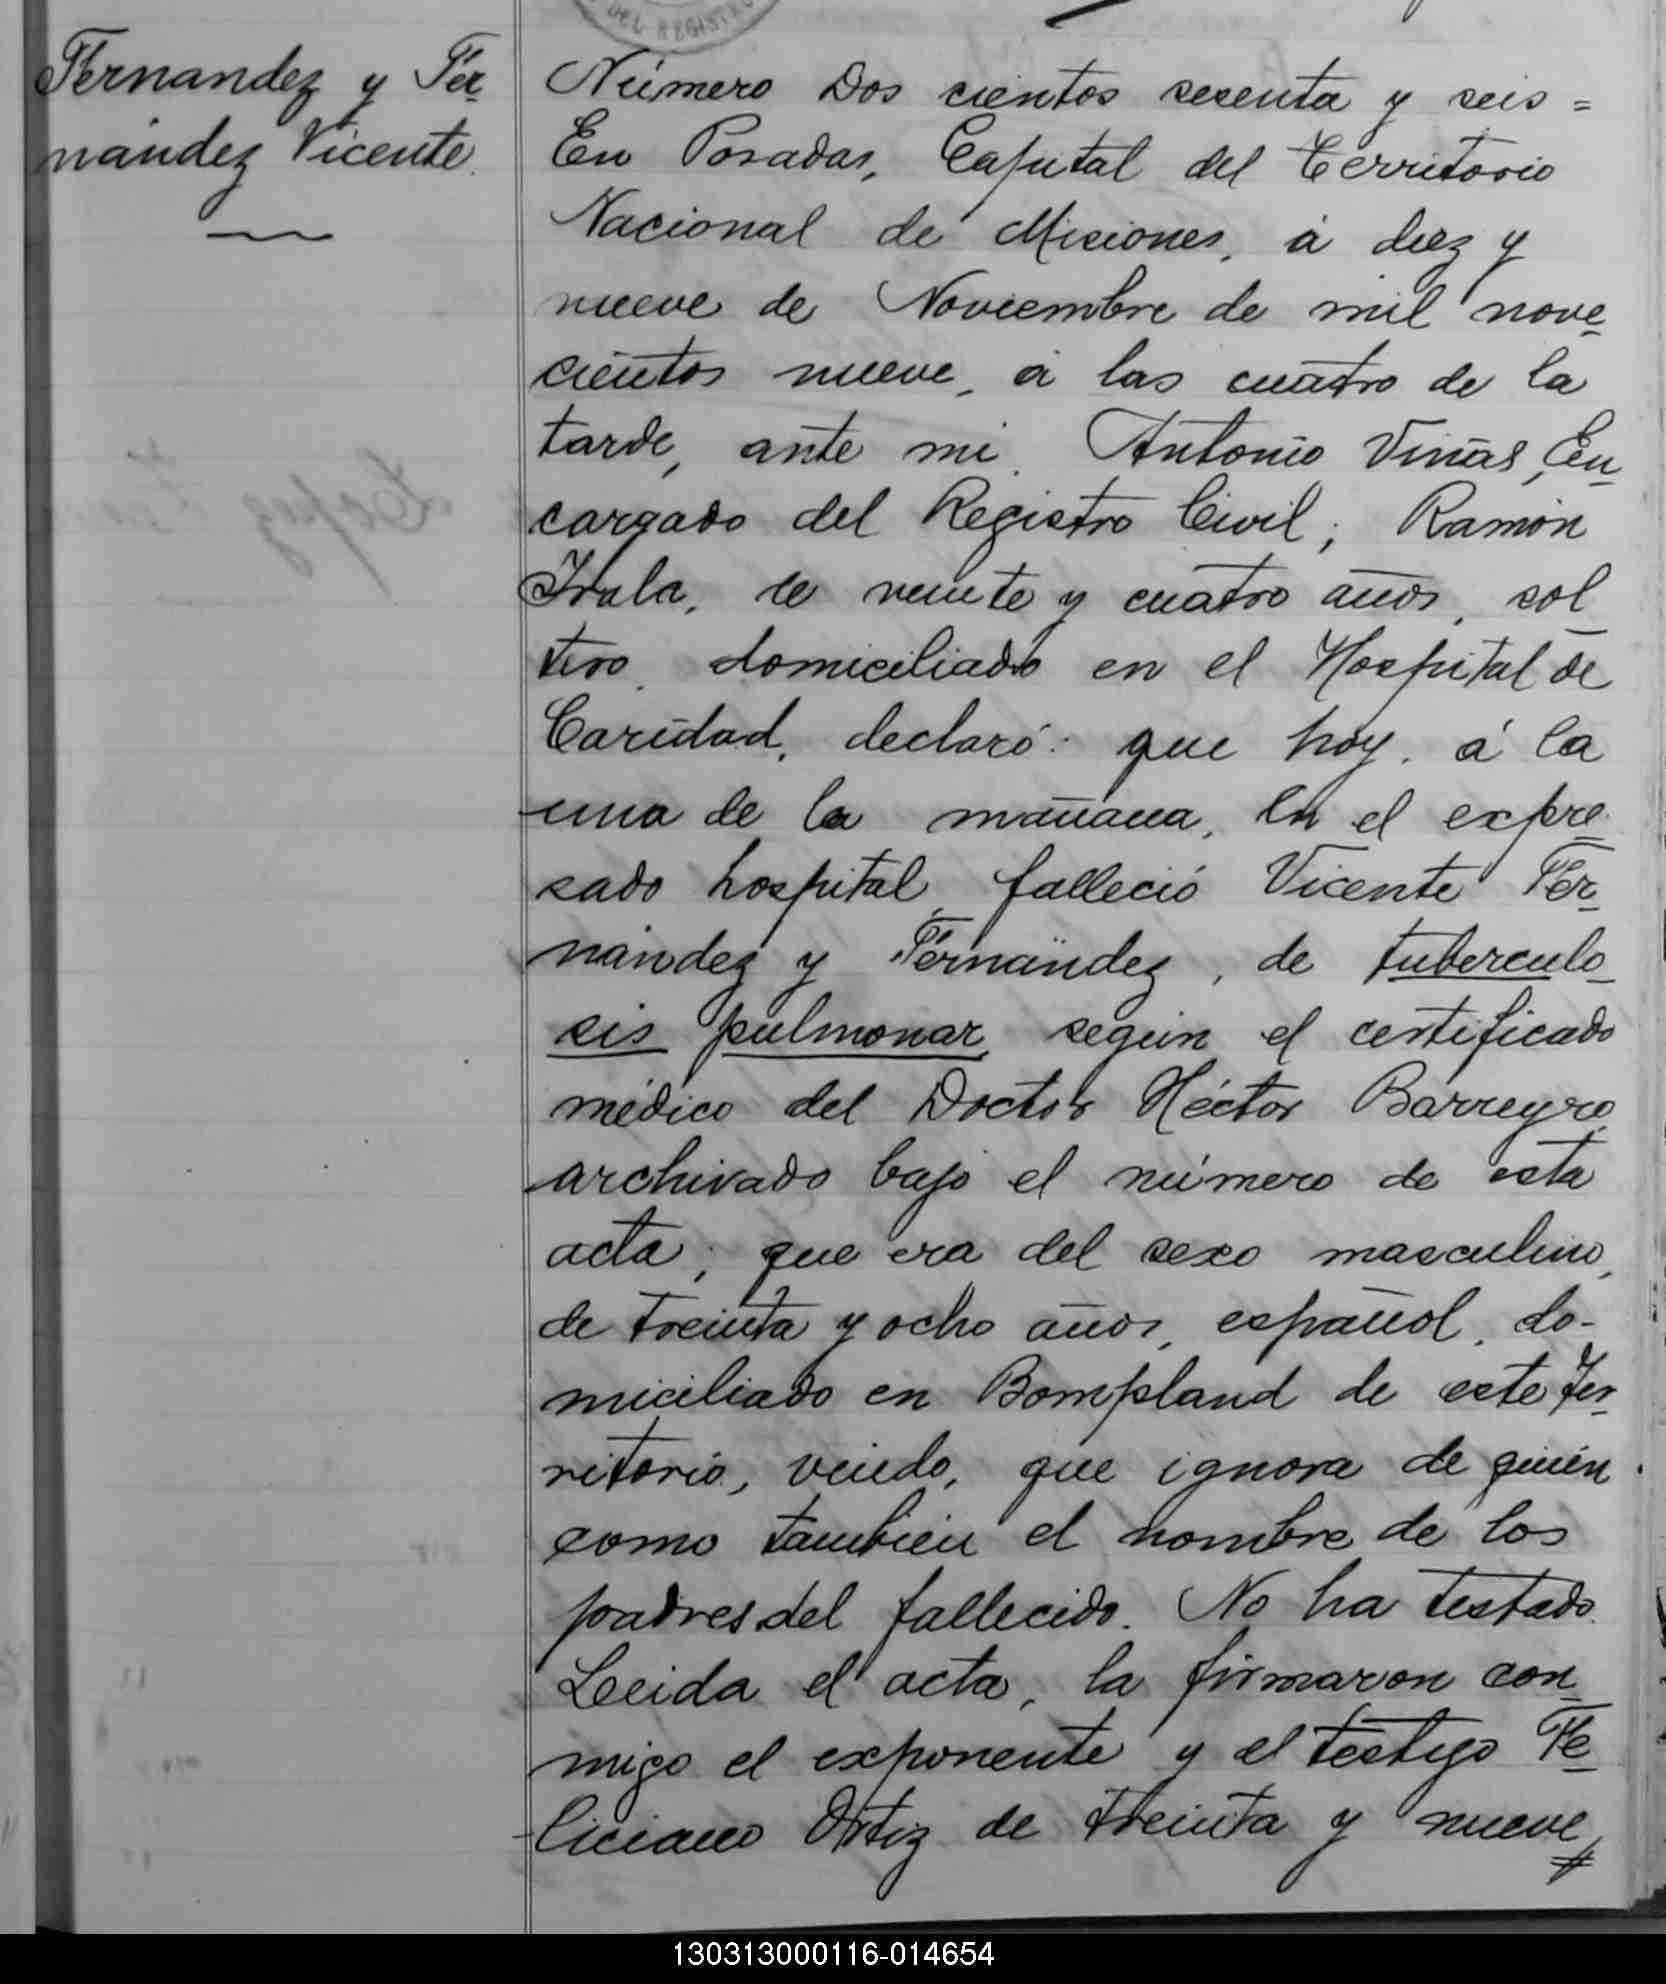 DEL REGISTRO
Fernandez y Fer-
nández Vicente.
Número Dos cientos sesenta y seis =
En Posadas, Capital del Territorio
Nacional de Misiones, á diez y
nueve de Noviembre de mil nove-
cientos nueve, á las cuatro de la
tarde, ante mi Antonio Viñas, En-
cargado del Registro Civil; Ramón
Irala, de veinte y cuatro años, sol-
tero, domiciliado en el Hospital de
Caridad, declaró: que hoy, á la
una de la mañana, en el expre-
sado hospital, falleció Vicente Fer-
nández y Fernández, de tuberculo-
sis pulmonar, según el certificado
médico del Doctor Héctor Barreyro,
archivado bajo el número de esta
acta; que era del sexo masculino,
de treinta y ocho años, español, do-
miciliado en Bompland de este Ter-
ritorio, viudo, que ignora de quién
como también el nombre de los
padres del fallecido. No ha testado.
Leida el acta, la firmaron con-
migo el exponente y el testigo Fe-
liciano Ortiz de treinta y nueve
130313000116-014654